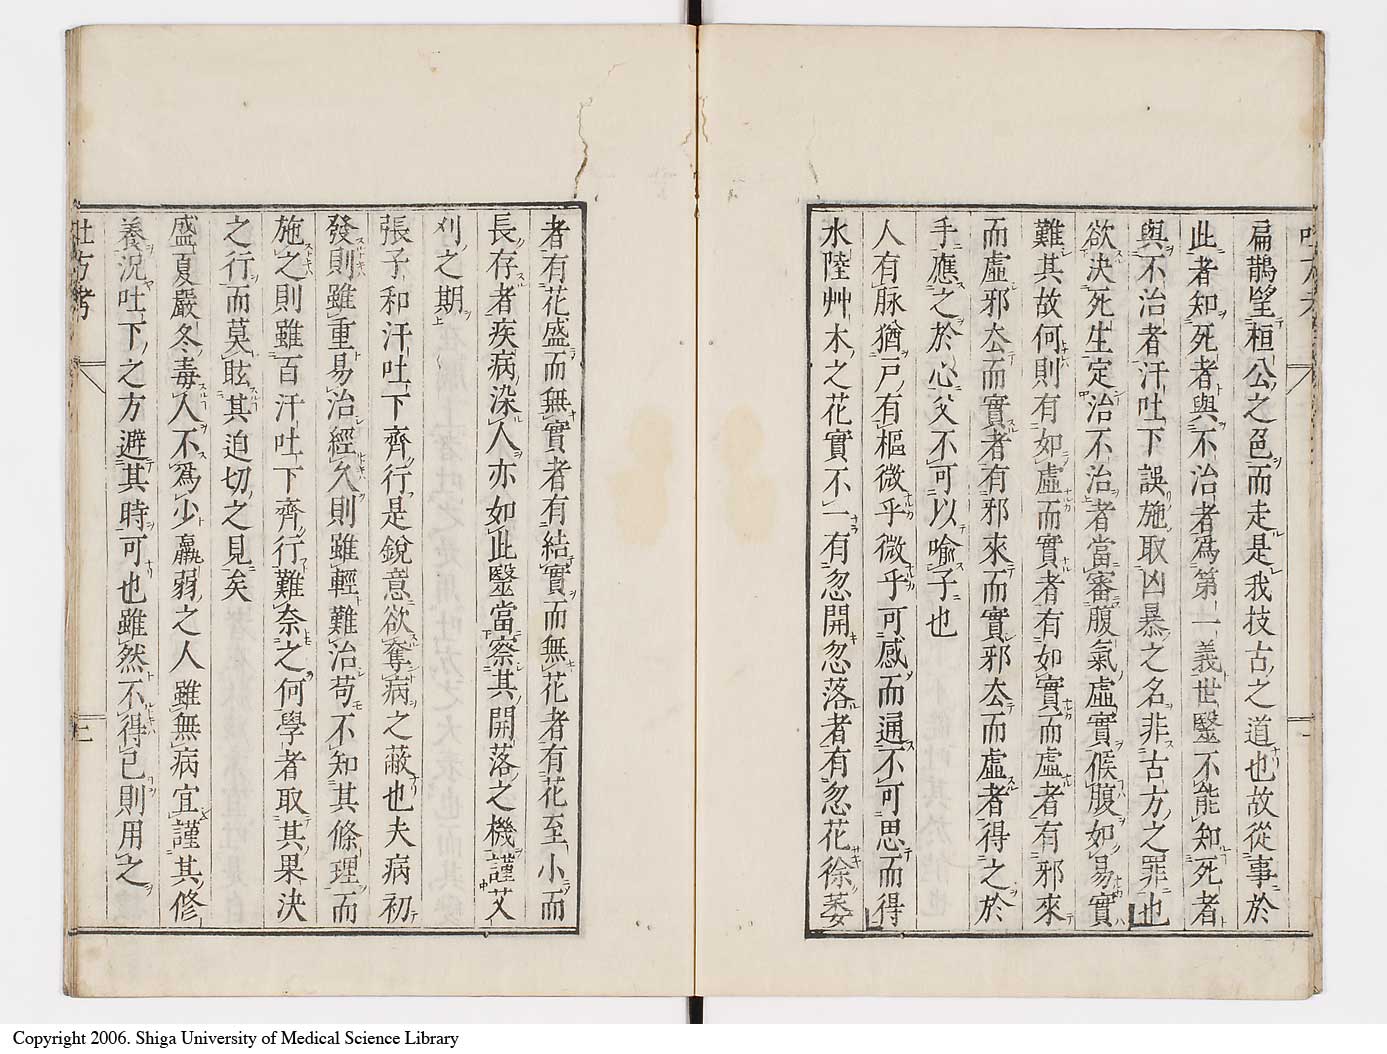 扁鵲望桓公之色而走是我技古之道也故從事於
此者知死者與不治者爲第一義世毉不能知死者
與不治者汗吐下誤施取凶暴之名非古方之罪也
欲決死生定治不治者當審腹氣虛實候腹如易實
難其故何則有如虛而實者有如實而虛者有邪來
而虛邪厺而實者有邪來而實邪厺而虛者得之於
手應之於心父不可以喩子也
人有脉猶戸有樞微乎微乎可感而通不可思而得
水陸艸木之花實不一有忽開忽落者有忽花徐萎
者有花盛而無實者有結實而無花者有花至小而
長存者疾病染人亦如此毉當察其開落之機謹艾
刈之期
張子和汗吐下齊行是銳意欲奪病之蔽也夫病初
發則雖重易治經久則雖輕難治苟不知其條理而
施之則雖百汗吐下齊行難奈之何學者取其果決
之行而莫眩其迫切之見矣
盛夏嚴冬毒人不爲少羸弱之人雖無病宜謹其修
養況吐下之方避其時可也雖然不得已則用之
吐方考
二
Copyright 2006. Shiga University of Medical Science Library